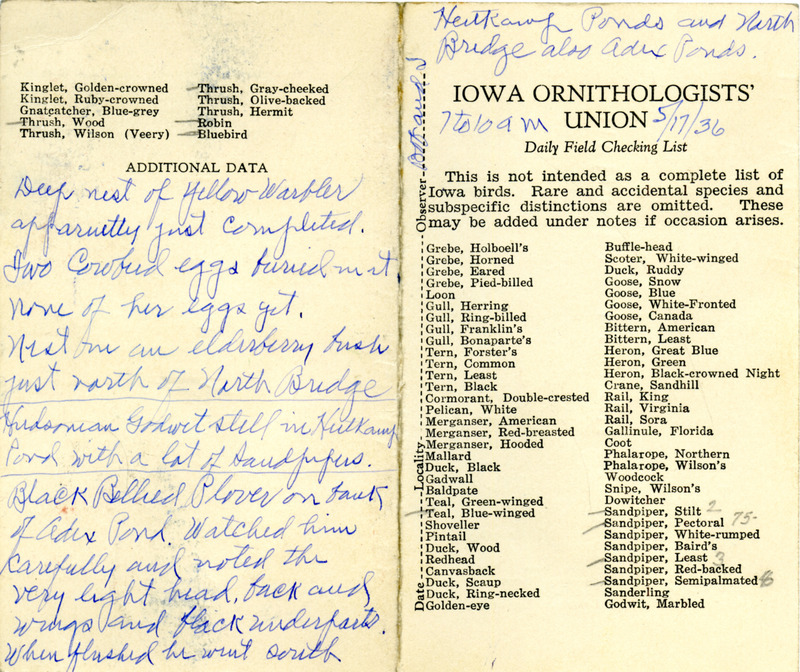 Kinglet, Golden-crowned
Kinglet, Ruby-crowned
Gnatcatcher, Blue-grey
Thrush, Wood
Thrush, Wilson (Veery)
Thrush, Gray-cheeked
Thrush, Olive-backed
Thrush, Hermit
Robin
Bluebird
ADDITIONAL DATA
Deep nest of Yellow Warbler
apparuetly just completed.
Two Cowbird eggs buried in it
none of her eggs yet.
Nest in an elderberry bush
just north of North Bridge
Hudsonian Godwit still in Heitkamp
Pond with a lot of Sandpipers.
Black Bellied Plover on bank
of Adex Pond. Watched him
carefully and noted the
very light head, back and
wings and black underparts.
When flushed he went south
Heitkamp Ponds and North
Bridge also Adex Ponds.
IOWA ORNITHOLOGISTS'
7 to 10 am UNION 5/17/36
Daily Field Checking List
This is not intended as a complete list of
Iowa birds. Rare and accidental species and
subspecific distinctions are omitted. These
may be added under notes if occasion arises.
Date Locality Observer
Grebe, Holboell's
Grebe, Horned
Grebe, Eared
Grebe, Pied-billed
Loon
Gull, Herring
Gull, Ring-billed
Gull, Franklin's
Gull, Bonaparte's
Tern, Forster's
Tern, Common
Tern, Least
Tern, Black
Cormorant, Double-crested
Pelican, White
Merganser, American
Merganser, Red-breasted
Merganser, Hooded
Mallard
Duck, Black
Gadwall
Baldpate
Teal, Green-winged
Teal, Blue-winged
Shoveller
Pintail
Duck, Wood
Redhead
Canvasback
Duck, Scaup
Duck, Ring-necked
Golden-eye
Buffle-head
Scoter, White-winged
Duck, Ruddy
Goose, Snow
Goose, Blue
Goose, White-Fronted
Goose, Canada
Bittern, American
Bittern, Least
Heron, Great Blue
Heron, Green
Heron, Black-crowned Night
Crane, Sandhill
Rail, King
Rail, Virginia
Rail, Sora
Gallinule, Florida
Coot
Phalarope, Northern
Phalarope, Wilson's
Woodcock
Snipe, Wilson's
Dowitcher
Sandpiper, Stilt 2
Sandpiper, Pectoral 75-
Sandpiper, White-rumped
Sandpiper, Baird's
Sandpiper, Least 3
Sandpiper, Red-backed
Sandpiper, Semipalmated 8
Sanderling
Godwit, Marbled